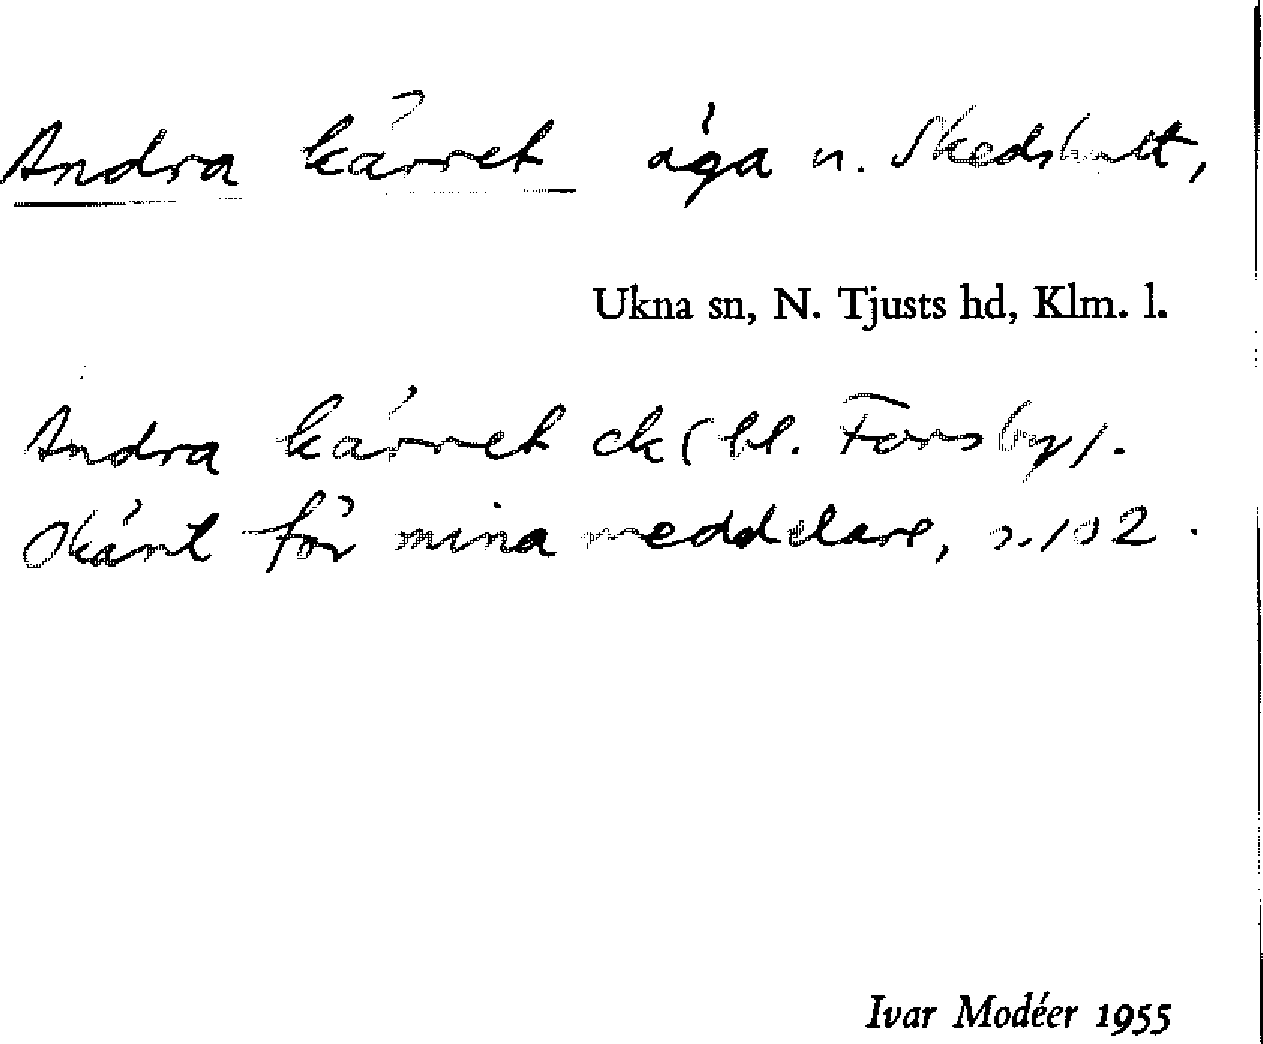 Andra kärret äga n. Skedshult,
Ukna sn, N. Tjusts hd, Klm. l.
Andra kärret ek (bl. Forsby).
Okänt för mina meddelare, s. 102.
Ivar Modéer 1955